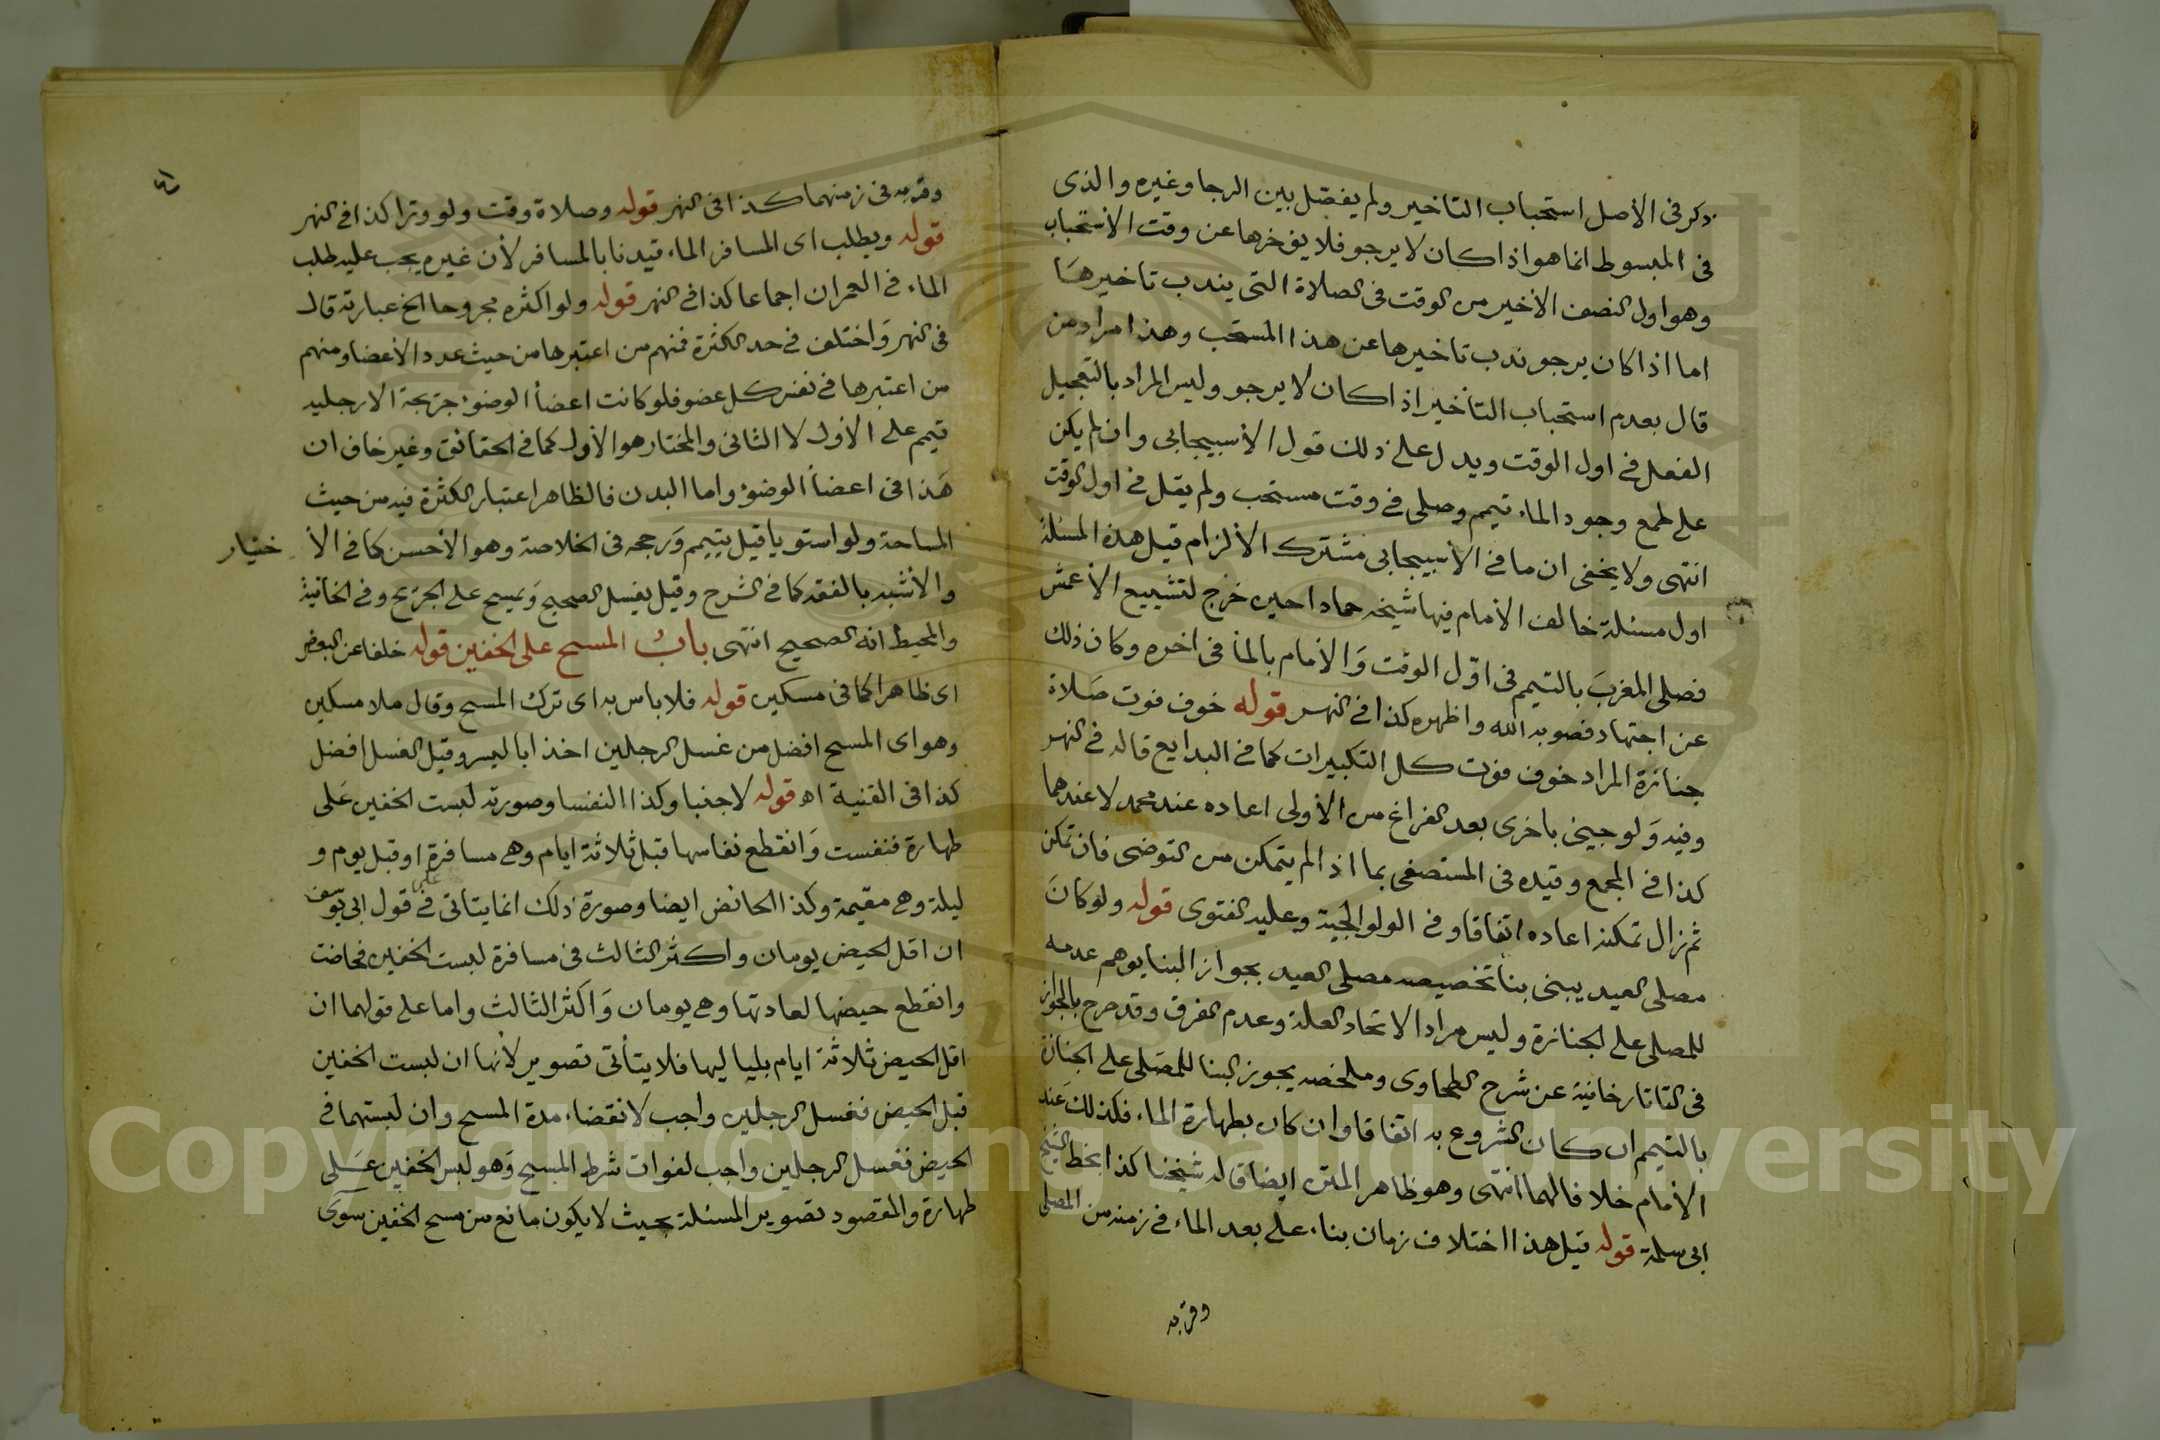 ذكر فى الأصل استحباب التاخير ولم يفصل بين الرجا وغيره والذى
فى المبسوط انما هو اذا كان لا يرجو فلا يؤخرها عن وقت الأستحباب
وهو اول النصف الأخير من الوقت فى الصلاة التى يندب تاخيرها
اما اذا كان يرجو ندب تاخيرها عن هذا المستحب وهذا مراد من
قال بعدم استحباب التأخير اذا كان لا يرجو وليس المراد بالتعجيل
الفعل فى اول الوقت ويدل على ذلك قول الأسبيجابى وان لم يكن
على طمع وجود الماء تيمم وصلى فى وقت مستحب ولم يقل فى اول الوقت
انتهى ولا يخفى ان ما فى الأسبيجابى مشترك الألزام قيل هذه المسئلة
اول مسئلة خالف الأمام فيها شيخه حمادا حين خرج لتشييع الأعمش
فصلى المغرب بالتيمم فى اوّل الوقت وَالأمام بالماء فى اخره وكان ذلك
عن اجتهاد فصوبه الله واظهره كذا فى النهر قوله خوف فوت صَلاة
جنازة المراد خوف فوت كل التكبيرات كما فى البدايع قاله فى النهر
وفيه وَلو جيئ باخرى بعد الفراغ من الأولى اعاده عند محمد لا عندهما
كذا فى المجمع وقيده فى المستصفى بما اذا لم يتمكن من التوضى فان تمكن
ثم زال تمكنه اعاده اتفاقا وفى الولوالجية وعليه الفتوى قوله ولو كانَ
مصلى العيد يبنى بنا تخصيصه مصلى العيد بجواز البنا يوهم عدمه
للمصلى على الجنازة وليس مرادا لاتحاد العلة وعدم الفرق وقد صرح بالجواز
فى التاتارخانية عن شرح الطحاوى وملخصه يجوز البنا للمصَلى على الجنازة
بالتيمم ان كان الشروع به اتفاقا وان كان بطهارة الماء فكذلك عَند
الأمام خلافا لهما انتهى وهو ظاهر المتن ايضا قاله شيخنا كذا بخط الشيخ
ابى سلمة قوله قيل هذا اختلاف زمان بناء على بعد الماء فى زمنه من المصلى
وقربه
٤١
وقربه فى زمنهما كذا فى النهر قوله وصلاة وقت ولو وترا كذا فى النهر
قوله ويطلب اى المسافر الماء قيدنا بالمسافر لأن غيره يجب عليه طلب
الماء فى العمران اجماعا كذا فى النهر قوله ولو اكثره مجروحا الخ عبارته قال
فى النهر وَاختلف فى حد الكثرة فمنهم من اعتبرها من حيث عدد الأعضا ومنهم
من اعتبرها فى نفس كل عضو فلو كانت اعضأ الوضوء جريحة الا رجليه
تيمم على الأول لا الثانى والمختار هو الأول كما فى الحقائق وغير خاف ان
هَذا فى اعضأ الوضوء واما البدن فالظاهر اعتبار الكثرة فيه من حيث
المساحة ولو استويا قيل يتيمم وَرجحه فى الخلاصة وهو الأحسن كما فى الأ ختيار
والأشبه بالفقه كما فى الشرح وقيل يغسل الصحيح وَيمسح على الجريح وفى الخانية
والمحيط انه الصحيح انتهى بابُ المسح على الخفين قوله خلفا عن البعض
اى ظاهرا كما فى مسكين قوله فلا باس به اى ترك المسح وقال ملا مسكين
وهو اى المسح افضل من غسل الرجلين اخذا باليسر وقيل الغسل افضل
كذا فى القنية اه قوله لا جنبا وكذا النفسا وصورته لبست الخفين عَلى
طهارة فنفست وَانقطع نفاسها قبل ثلاثة ايام وهى مسافرة او قبل يوم و
ليلة وهى مقيمة وكذا الحائض ايضا وصورة ذلك انما يتاتى فى على قول ابى يوسف
ان اقل الحيض يومان واكثر الثالث فى مسافرة لبست الخفين فحاضت
وانقطع حيضها لعادتها وهى يومان وَاكثر الثالث واما على قولهما ان
اقل الحيض ثلاثة ايام بلياليها فلا يتأتى تصوير لأنها ان لبست الخفين
قبل الحيض فغسل الرجلين واجب لانقضاء مدة المسح وان لبستهما فى
الحيض فغسل الرجلين واجب لفوات شرط المسح وَهو لبس الخفين عَلى
طهارة والمقصود تصوير المسئلة بحيث لا يكون مانع من مسح الخفين سوَى
Copyright © King Saud University